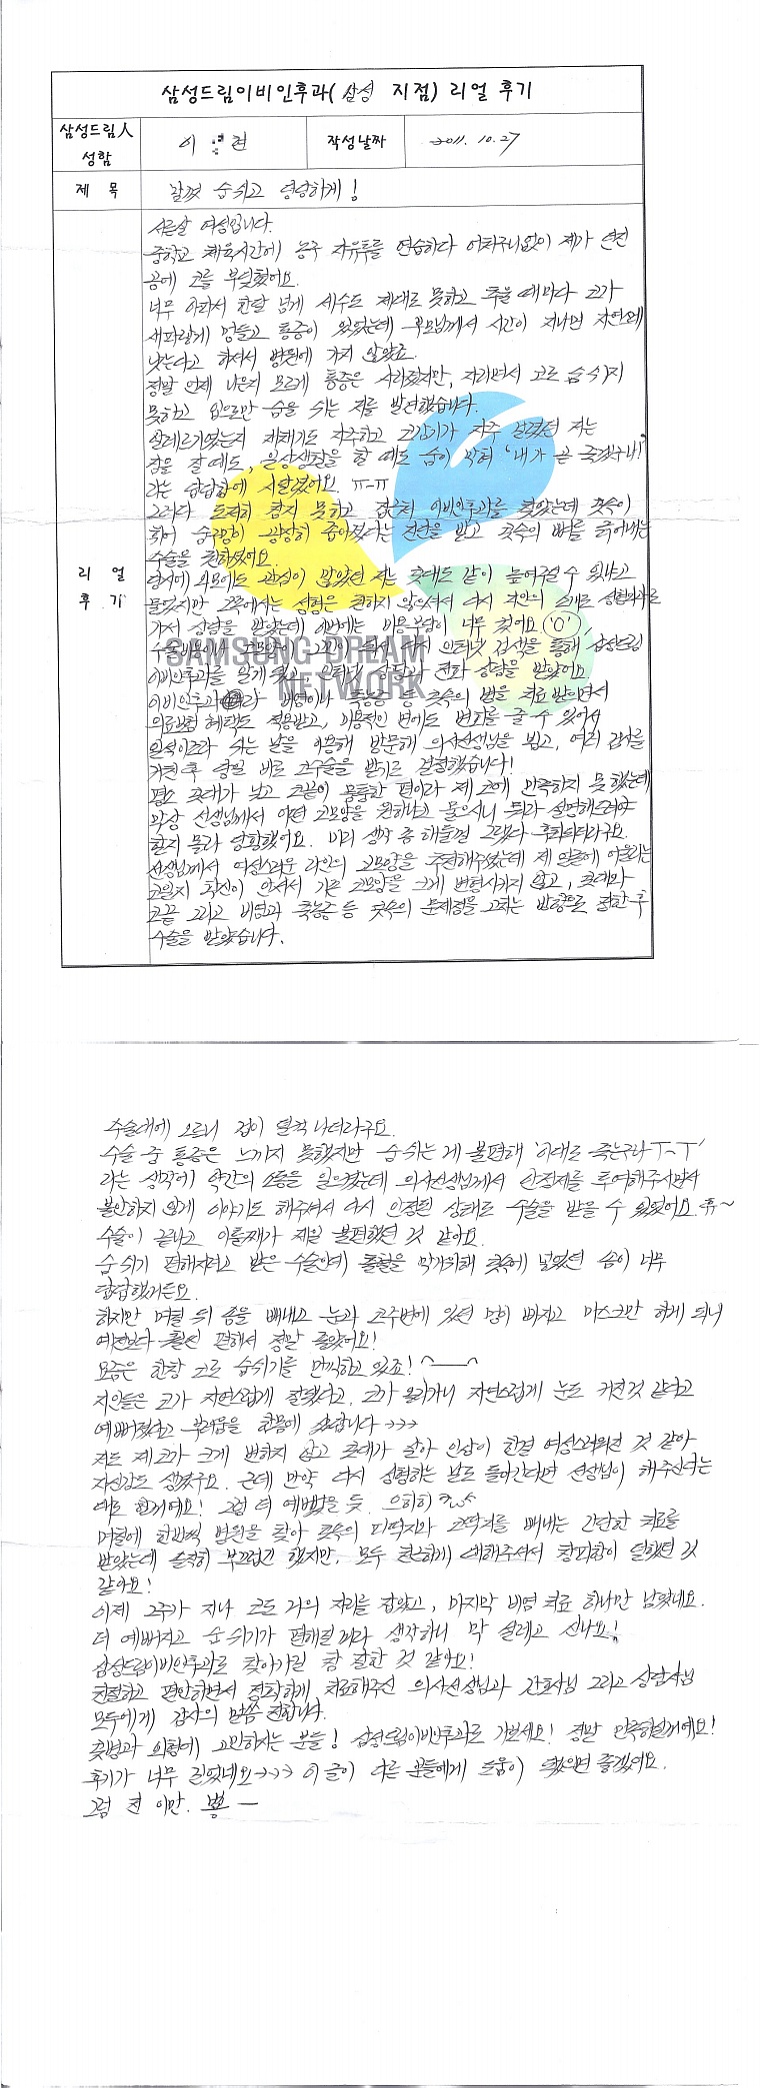 삼성드림이비인후과( 삼성 지점) 리얼 후기
삼성드림人 성함 이 현 작성날짜 2011. 10. 27
제 목 맘껏 숨쉬고 당당하게!
리 얼 후 기
서른살 여성입니다.
중학교 체육시간에 농구 자유투를 연습하다 어처구니없이 제가 던진
공에 코를 부딪혔어요.
너무 아파서 한달 넘게 세수도 제대로 못하고 추울 때마다 코가
새파랗게 멍들고 통증이 있었는데 부모님께서 시간이 지나면 자연스레
낫는다고 하셔서 병원에 가지 않았죠.
정말 언제 나은지 모르게 통증은 사라졌지만, 자라면서 코로 숨쉬지
못하고 입으로만 숨을 쉬는 저를 발견했습니다.
알레르기였는지 재채기도 자주하고 코감기가 자주 걸렸던 저는
잠을 잘 때도, 일상생활을 할 때도 숨이 막혀 '내가 곧 죽겠구나!'
라는 답답함에 시달렸어요. ㅠ-ㅠ
그러다 도저히 참지 못하고 집근처 이비인후과를 찾았는데 콧속이
휘어 숨구멍이 굉장히 좁아졌다는 진단을 받고 콧속의 뼈를 긁어내는
수술을 권하셨어요.
당시에 외모에도 관심이 많았던 저는 콧대도 같이 높여주실 수 있냐고
물었지만 그쪽에서는 성형은 권하지 않으셔서 다시 지인의 소개로 성형외과로
가서 상담을 받았는데 이번에는 비용부담이 너무 컸어요 ('0'),
수술비용에 고민이 다시 인터넷 검색을 통해 삼성드림
이비인후과를 알게 됐고, 인터넷 상담과 전화 상담을 받았어요.
이비인후과라 비염이나 축농증 등 콧속의 병을 치료 받으면서
의료보험 혜택도 적용받고, 미용적인 면에도 변화를 줄 수 있어서
일석이조라 쉬는 날을 이용해 방문해 의사선생님을 뵙고, 여러 검사를
거친 후 당일 바로 코수술을 받기로 결정했습니다!
평소 콧대가 낮고 코끝이 뭉툭한 편이라 제 코에 만족하지 못했는데
막상 선생님께서 어떤 코모양을 원하냐고 물으시니 뭐라 설명해드려야
할지 몰라 당황했어요. 미리 생각 좀 해둘껄 그랬다 후회되더라구요.
선생님께서 여성스러운 라인의 코모양을 추천해주셨는데 제 얼굴에 어울리는
코일지 확신이 안서서 기존 코모양을 크게 변형시키지 않고, 콧대와
코끝 그리고 비염과 축농증 등 콧속의 문제점을 고치는 방향으로 정한 후
수술을 받았습니다.
수술대에 오르니 겁이 덜컥 나더라구요.
수술 중 통증은 느끼지 못했지만 숨 쉬는 게 불편해 '이대로 죽는구나 ㅜ-ㅜ'
라는 생각에 약간의 소동을 일으켰는데 의사선생님께서 안정제를 투여해주시면서
불안하지 않게 이야기도 해주셔서 다시 안정된 상태로 수술을 받을 수 있었어요. 휴~
수술이 끝나고 이틀째가 제일 불편했던 것 같아요.
숨 쉬기 편해지려고 받은 수술인데 출혈을 막기위해 콧속에 넣었던 솜이 너무
답답했거든요.
하지만 며칠 뒤 솜을 빼내고 눈과 코주변에 있던 멍이 빠지고 마스크만 하게 되니
예전보다 훨씬 편해서 정말 좋았어요!
요즘은 한창 코로 숨쉬기를 만끽하고 있죠! ^___^
지인들은 코가 자연스럽게 잘됐다고, 코가 올라가니 자연스럽게 눈도 커진것 같다고
예뻐졌다고 부러움을 한몸에 샀답니다 >>>
저도 제 코가 크게 변하지 않고 콧대가 살아 인상이 한결 여성스러워진 것 같아
자신감도 생겼구요. 근데 만약 다시 성형하는 날로 돌아간다면 선생님이 해주신다는
대로 할거예요! 그럼 더 예뻤을 듯. 으히히
며칠에 한번씩 병원을 찾아 콧속의 피딱지와 코딱지를 빼내는 간단한 치료를
받았는데 솔직히 부끄럽긴 했지만, 모두 친근하게 대해주셔서 창피함이 덜했던 것
같아요!
이제 2주가 지나 코도 거의 자리를 잡았고, 마지막 비염 치료 하나만 남았네요.
더 예뻐지고 숨 쉬기가 편해질거라 생각하니 막 설레고 신나요!
삼성드림이비인후과로 찾아가길 참 잘한 것 같아요!
친절하고 편안하면서 정확하게 치료해주신 의사선생님과 간호사님 그리고 상담사님
모두에게 감사의 말씀 전합니다.
콧병과 외형에 고민하시는 분들! 삼성드림이비인후과로 가보세요! 정말 만족하실거예요!
후기가 너무 길었네요>>> 이 글이 다른 분들에게 도움이 됐으면 좋겠어요.
그럼 전 이만. 뿅 —
SAMSUNG DREAM
NETWORK